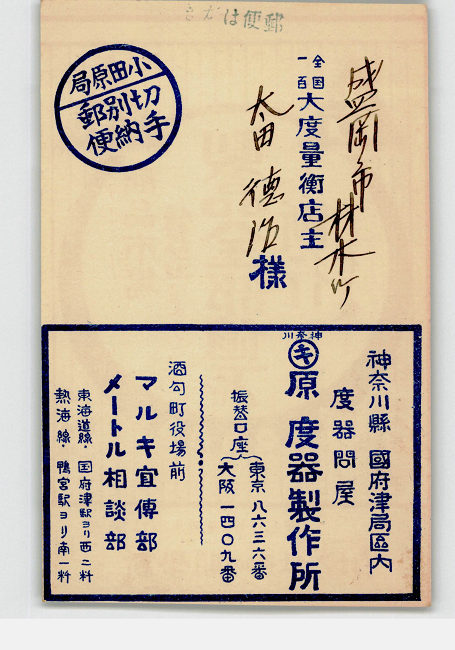 郵便はがき
小田原局
切手別納郵便
盛岡市材木町
全国一百大度量衡店主
太田徳治様
神奈川縣 國府津局區内
度器問屋
神奈川
キ原度器製作所
振替口座
東京八六三六番
大阪一四〇九番
酒匂町役場前
マルキ宣傳部
メートル相談部
東海道線・国府津駅ヨリ西二粁
熱海線・鴨宮駅ヨリ南一粁